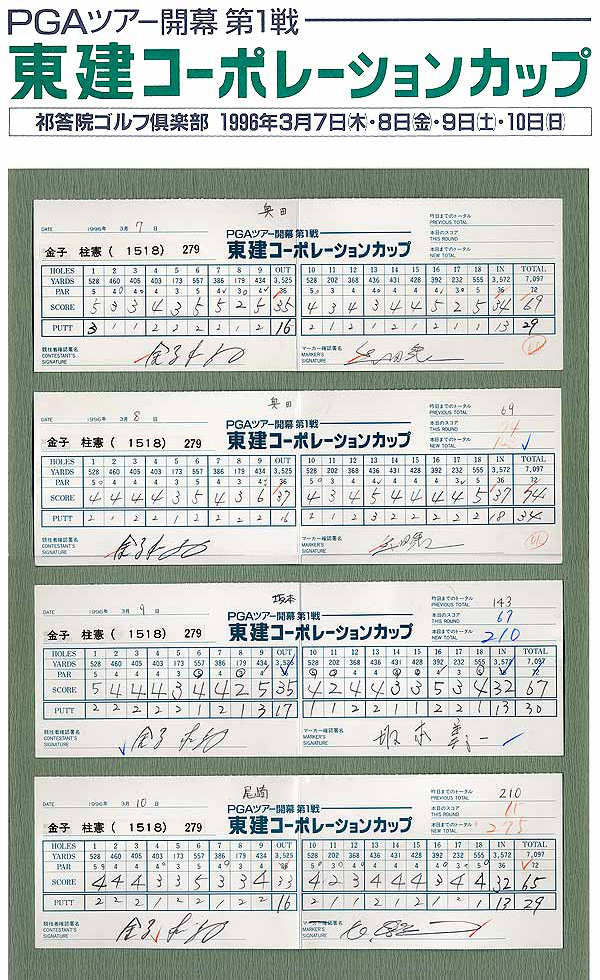 PGAツアー開幕 第1戦
東建コーポレーションカップ
祁答院ゴルフ倶楽部 1996年3月7日㈭・8日㈮・9日㈯・10日㈰
奥田
DATE 1996年 3月 7日
昨日までのトータル
PREVIOUS TOTAL
PGAツアー開幕 第1戦
本日のスコア
THIS ROUND
金子 柱憲 ( 1518) 279
東建コーポレーションカップ
本日までのトータル
NEW TOTAL
HOLES 1 2 3 4 5 6 7 8 9 OUT 10 11 12 13 14 15 16 17 18 IN TOTAL
YARDS 528 460 405 403 173 557 386 179 434 3,525 528 202 368 436 431 448 392 232 555 3,572 7,097
PAR 5 4 4 4 3 5 4 3 4 36 5 3 4 4 4 4 4 3 5 36 72
SCORE 5 3 3 4 3 5 5 2 5 35 4 3 4 3 4 4 5 2 5 34 69
PUTT 3 1 1 2 2 2 2 1 2 16 2 1 2 1 2 1 2 1 1 13 29
競技者確認署名
CONTESTANT'S
SIGNATURE
マーカー確認署名
MARKER'S
SIGNATURE
奥田
DATE 1996年 3月 8日
昨日までのトータル
PREVIOUS TOTAL 69
PGAツアー開幕 第1戦
本日のスコア
THIS ROUND 74
金子 柱憲 ( 1518) 279
東建コーポレーションカップ
本日までのトータル
NEW TOTAL
HOLES 1 2 3 4 5 6 7 8 9 OUT 10 11 12 13 14 15 16 17 18 IN TOTAL
YARDS 528 460 405 403 173 557 386 179 434 3,525 528 202 368 436 431 448 392 232 555 3,572 7,097
PAR 5 4 4 4 3 5 4 3 4 36 5 3 4 4 4 4 4 3 5 36 72
SCORE 4 4 4 4 3 5 4 3 6 37 4 3 4 5 4 4 4 4 5 37 74
PUTT 2 1 2 2 1 2 2 2 2 16 2 1 2 3 2 2 2 2 2 18 34
競技者確認署名
CONTESTANT'S
SIGNATURE
マーカー確認署名
MARKER'S
SIGNATURE
坂本
DATE 1996年 3月 9日
昨日までのトータル
PREVIOUS TOTAL 143
PGAツアー開幕 第1戦
本日のスコア
THIS ROUND 67
金子 柱憲 ( 1518) 279
東建コーポレーションカップ
本日までのトータル
NEW TOTAL 210
HOLES 1 2 3 4 5 6 7 8 9 OUT 10 11 12 13 14 15 16 17 18 IN TOTAL
YARDS 528 460 405 403 173 557 386 179 434 3,525 528 202 368 436 431 448 392 232 555 3,572 7,097
PAR 5 4 4 4 3 5 4 3 4 36 5 3 4 4 4 4 4 3 5 36 72
SCORE 5 4 4 4 3 4 4 2 5 35 4 2 4 4 3 3 5 3 4 32 67
PUTT 2 2 2 2 2 1 2 1 3 17 1 1 2 2 1 1 2 2 1 13 30
競技者確認署名
CONTESTANT'S
SIGNATURE
マーカー確認署名
MARKER'S
SIGNATURE
尾崎
DATE 1996年 3月 10日
昨日までのトータル
PREVIOUS TOTAL 210
PGAツアー開幕 第1戦
本日のスコア
THIS ROUND
金子 柱憲 ( 1518) 279
東建コーポレーションカップ
本日までのトータル
NEW TOTAL 275
HOLES 1 2 3 4 5 6 7 8 9 OUT 10 11 12 13 14 15 16 17 18 IN TOTAL
YARDS 528 460 405 403 173 557 386 179 434 3,525 528 202 368 436 431 448 392 232 555 3,572 7,097
PAR 5 4 4 4 3 5 4 3 4 36 5 3 4 4 4 4 4 3 5 36 72
SCORE 4 4 4 3 3 5 3 3 4 33 4 2 3 4 4 4 3 4 4 32 65
PUTT 2 2 2 1 2 2 1 2 2 16 2 1 1 2 1 2 1 2 1 13 29
競技者確認署名
CONTESTANT'S
SIGNATURE
マーカー確認署名
MARKER'S
SIGNATURE